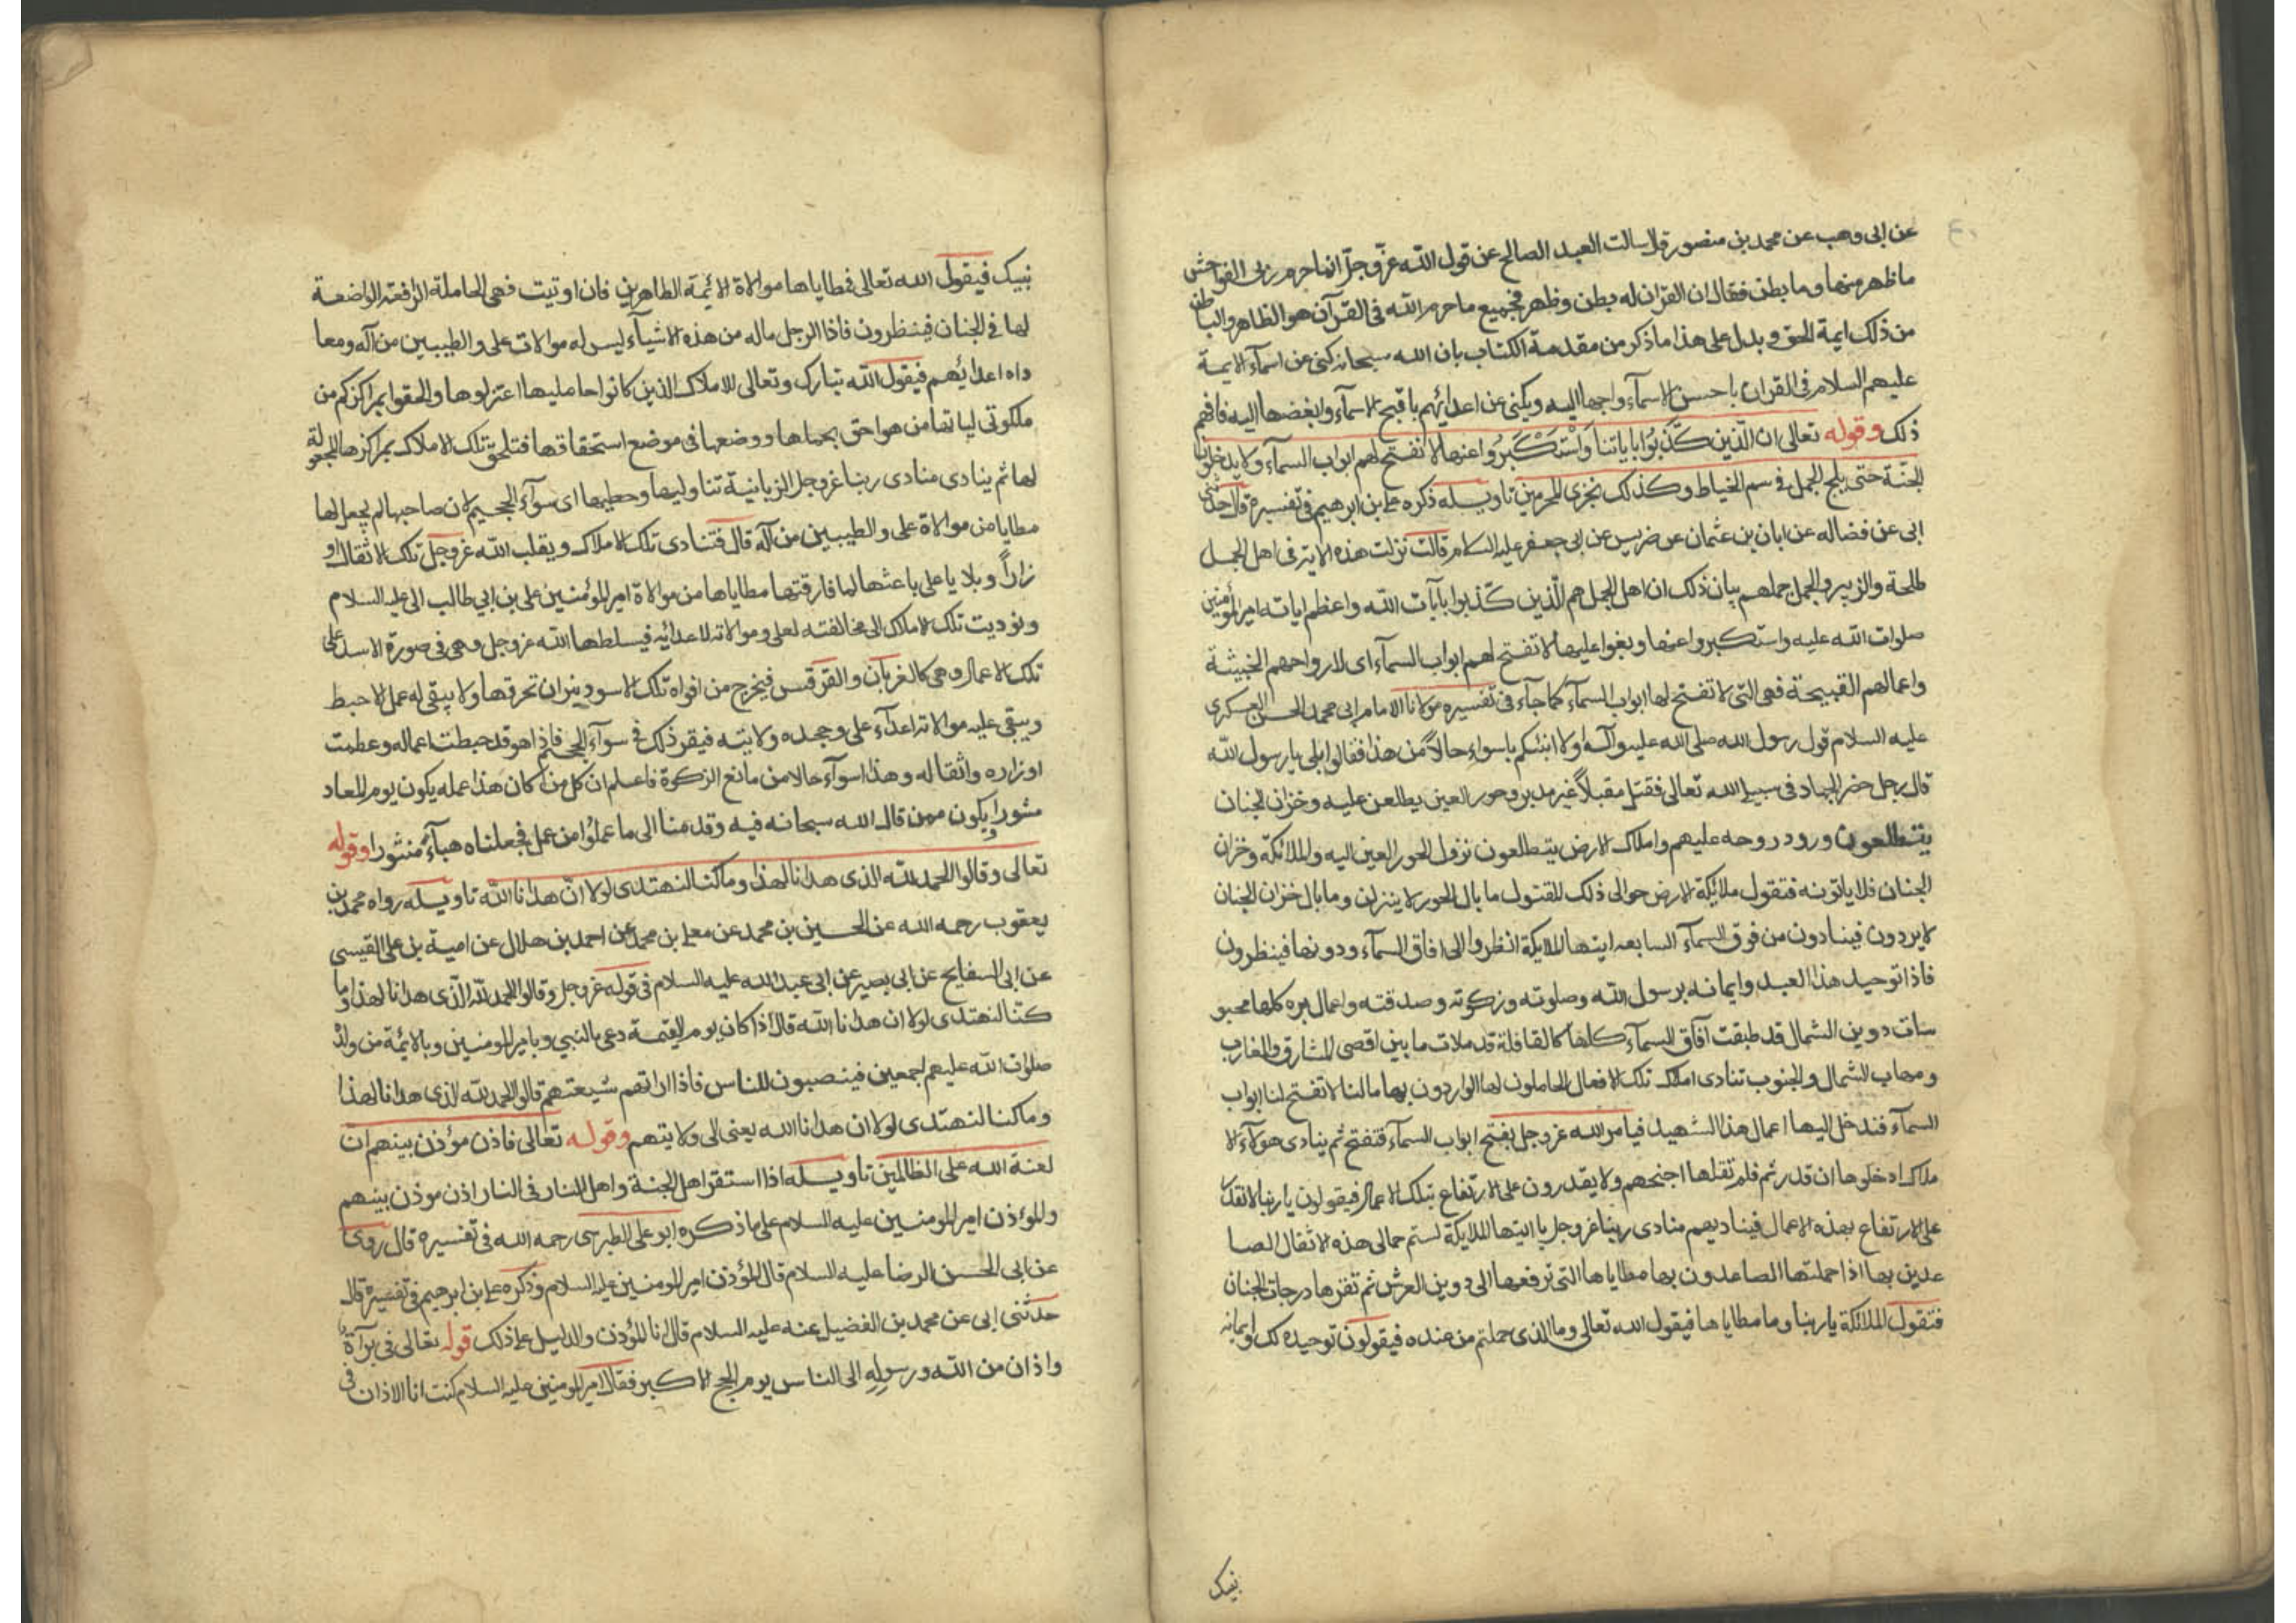 عن ابى وهب عن محمد بن منصور قال سالت العبد الصالح عن قول الله عزّ وجلّ انما حرم ربى الفواحش
ما ظهر منها وما بطن فقال ان القرآن له بطن وظهر فجميع ما حرم الله فى القرآن هو الظاهر والباطن
من ذلك ايمة الحق ويدل على هذا ما ذكر من مقدمة الكتاب بان الله سبحانه كنى عن اسمآء الايمة
عليهم السلام فى القران باحسن الاسمآء واحبها اليه ويكنى عن اعدائهم باقبح الاسمآء وابغضها اليه فافهم
ذلك وقوله تعالى ان الّذين كَذَّبُوا باياتنا وَاسْتَكْبَرُوا عنها لا تفتح لهم ابواب السمآء ولا يدخلون
الجنّة حتى يلج الجمل فى سم الخياط وكذلك نجزى المجرمين تاويله ذكره على بن ابرهيم فى تفسيره قال حدثنى
ابى عن فضاله عن ابان بن عثمان عن ضريس عن ابى جعفر عليه السلام قالت نزلت هذه الاية فى اهل الجمل
طلحة والزبير والجمل جملهم بيان ذلك ان اهل الجمل هم الّذين كذّبوا بآيات الله واعظم اياته امير المؤمنين
صلوات الله عليه واستكبروا عنها وبغوا عليها لا تفتح لهم ابواب السمآء اى لارواحهم الخبيثة
واعمالهم القبيحة فهى التى لا تفتح لها ابواب السمآء كما جآء فى تفسيره مولانا الامام ابى محمد الحسن العسكرى
عليه السلام قول رسول الله صلى الله عليه وآله اولا انبئكم باسواء حالاً من هذا فقالوا بلى يا رسول الله
قال رجل حضر الجهاد فى سبيل الله تعالى فقتل مقبلاً غير مدبر وحور العين يطلعن عليه وخزان الجنان
يتطلعون ورود روحه عليهم واملاك الارض يتطلعون نزول الحور العين اليه والملائكة وخزان
الجنان فلا ياتونه فتقول ملائكة الارض حوالى ذلك المقتول ما بال الحور لا ينزلن وما بال خزان الجنان
لا يردون فينادون من فوق السمآء السابعه ايتها الملايكة انظروا الى افاق السمآء ودونها فينظرون
فاذا توحيد هذا العبد وايمانه برسول الله وصلوته وزكوته وصدقته واعمال بره كلها محبو
سات دوين الشمال قد طبقت آفاق السمآء كلها كالقافلة قد ملات ما بين اقصى المشارق والمغارب
ومهاب الشمال والجنوب تنادى املاك تلك الافعال الحاملون لها الواردون بها مالنا لا تفتح لنا ابواب
السمآء فندخل اليها اعمال هذا الشهيد فيامر الله عز وجل بفتح ابواب السمآء فتفتح ثم ينادى هولآء الا
ملاك ادخلوها ان قدرتم فلم تقلها اجنحهم ولا يقدرون على الارتفاع بتلك الاعمال فيقولون يا ربنا لا نقدر
على الارتفاع بهذه الاعمال فيناديهم منادى ربنا عز وجل يا ايتها الملايكة لستم حمالى هذه الاثقال الصا
عدين بها اذا حملتها الصاعدون بها مطاياها التى ترفعها الى دوين العرش ثم تقرها درجات الجنان
فتقول الملائكة يا ربنا وما مطاياها فيقول الله تعالى وما الذى حملتم من عنده فيقولون توحيده لك وايمانه
بنبيك
نبيك فيقول الله تعالى فمطاياها موالاة الائمة الطاهرين فان اوتيت فهى الحاملة الرافعة الواضعة
لها فى الجنان فينظرون فاذا الرجل ماله من هذه الاشيآء ليس له موالات على والطيبين من آله ومعا
داه اعدائهم فيقول الله تبارك وتعالى للاملاك الذين كانوا حامليها اعتزلوها والحقوا بمراكزكم من
ملكوتى لياتها من هو احق بحملها ووضعها فى موضع استحقاقها فتلحق تلك الاملاك بمراكزها المجعولة
لها ثم ينادى منادى ربنا عز وجل الزبانية تناوليها وحطيها اى سوآء الجحيم لان صاحبها لم يجعل لها
مطايا من موالاة على والطيبين من آله قال فتنادى تلك الاملاك ويقلب الله عز وجل تلك الاثقال او
زاراً وبلايا على باعثها لما فارقتها مطاياها من موالاة امير المؤمنين على بن ابي طالب الى عليه السلام
ونوديت تلك الاملاك الى مخالفته لعلى وموالاته لاعدائيه فيسلطها الله عز وجل وهى فى صورة الاسد على
تلك الاعمال وهى كالغربان والقرقس فيخرج من افواه تلك الاسود نيران تحرقها ولا يبقى له عمل الا حبط
ويبقى عليه موالاته اعدآء على وجحده ولايته فيقر ذلك فى سوآء الجحيم فاذا هو قد حبطت اعماله وعظمت
اوزاره واثقاله وهذا اسوآء حالا من مانع الزكوة فاعلم ان كل من كان هذا عمله يكون يوم المعاد
مثورا ويكون ممن قال الله سبحانه فيه وقدمنا الى ما عملوا من عمل فجعلناه هبآءً منثورا وقوله
تعالى وقالوا الحمد لله الذى هدانا لهذا وما كنا لنهتدى لولا انّ هدانا الله تاويله رواه محمد بن
يعقوب رحمه الله عن الحسين بن محمد عن معلى بن محمد عن احمد بن هلال عن امية بن على القيسى
عن ابى السفايح عن ابى بصير عن ابى عبد الله عليه السلام فى قوله عز وجل وقالوا الحمد لله الّذى هدانا لهذا وما
كنّا لنهتدى لولا ان هدانا الله قال اذا كان يوم القيمة دعى بالنبي وبامير المومنين وبالائمة من ولده
صلوات الله عليهم اجمعين فينصبون للناس فاذا اراتهم شيعتهم قالوا الحمد لله الذى هدانا لهذا
وما كنا لنهتدى لولا ان هدانا الله يعنى الى ولايتهم وقوله تعالى فاذن مؤذن بينهم ان
لعنة الله على الظالمين تاويله اذا استقر اهل الجنة واهل النار فى النار اذن موذن بينهم
والمؤذن امير المومنين عليه السلام على ما ذكره ابو على الطبرسى رحمه الله فى تفسيره قال روى
عن ابى الحسن الرضا عليه السلام قال المؤذن امير المومنين عليه السلام وذكره على بن ابرهيم فى تفسيره قال
حدثنى ابى عن محمد بن الفضيل عنه عليه السلام قال انا المؤذن والدليل على ذلك قوله تعالى فى برآءة
واذان من الله ورسوله الى الناس يوم الحج الاكبر فقال امير المومنين عليه السلام كنت انا الاذان فى